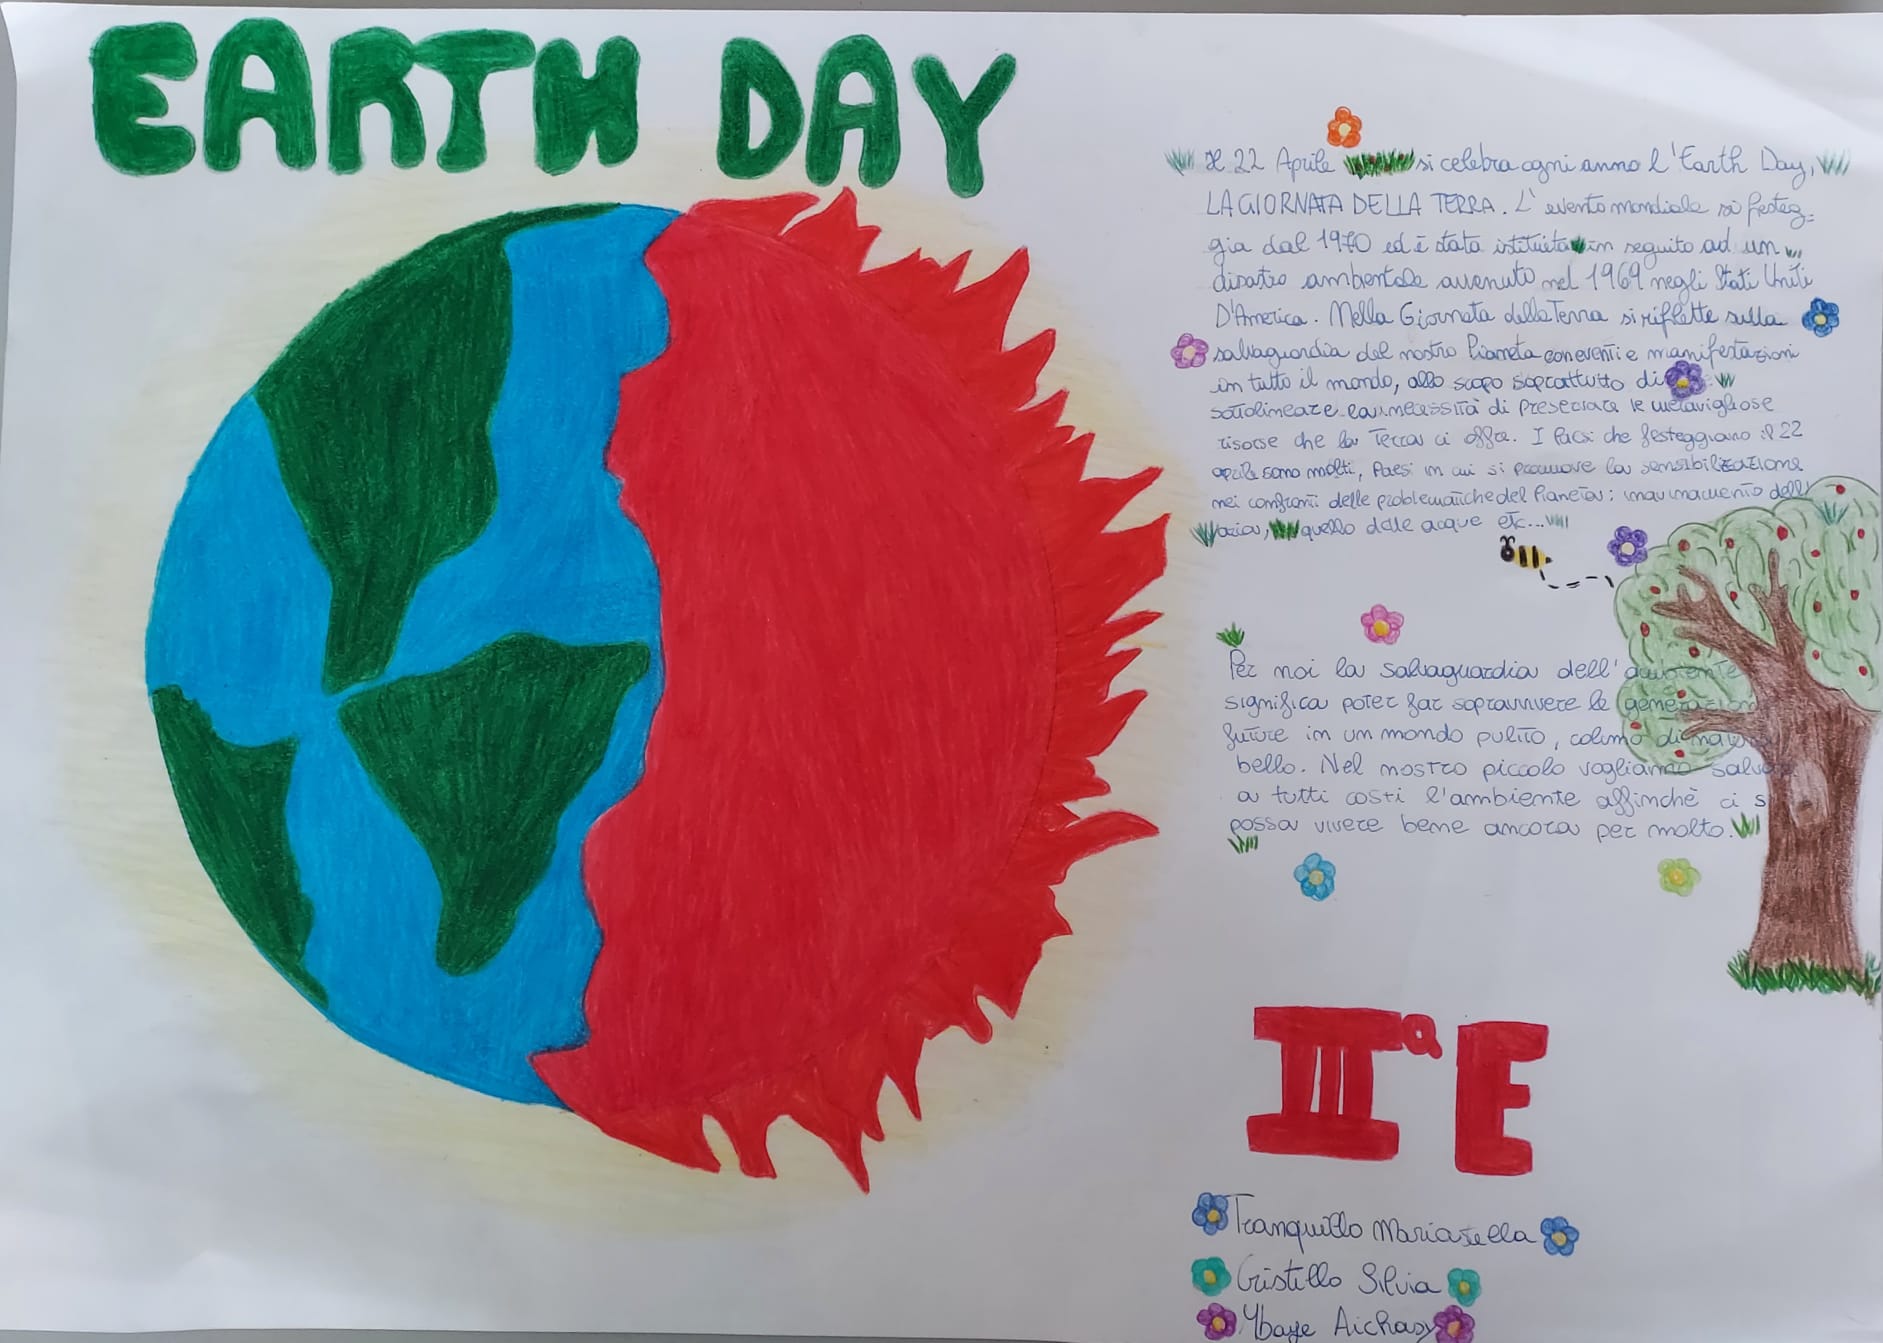 EARTH DAY
Il 22 Aprile si celebra ogni anno l'Earth Day,
LA GIORNATA DELLA TERRA. L'evento mondiale si festeg=
gia dal 1970 ed è stata istituita in seguito ad un
disastro ambientale avvenuto nel 1969 negli Stati Uniti
D'America. Nella Giornata della Terra si riflette sulla
salvaguardia del nostro Pianeta con eventi e manifestazioni
in tutto il mondo, allo scopo soprattutto di
sottolineare la necessità di preservare le meravigliose
risorse che la Terra ci offre. I Paesi che festeggiano il 22
aprile sono molti, Paesi in cui si promuove la sensibilizzazione
nei confronti delle problematiche del Pianeta: inquinamento dell'
aria, quello delle acque etc...
Per noi la salvaguardia dell'ambiente
significa poter far sopravvivere le generazioni
future in un mondo pulito, colmo di
bello. Nel nostro piccolo vogliamo
a tutti costi l'ambiente affinchè ci s
possa vivere bene ancora per molto.
IIª E
Tranquillo Mariastella
Cristello Silvia